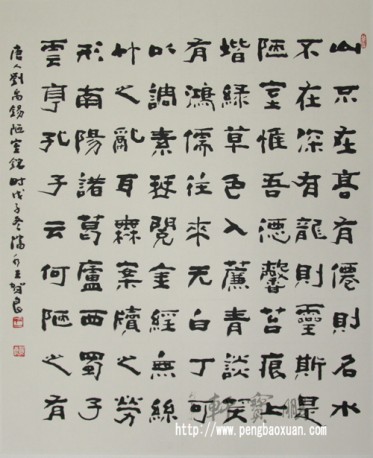 山不在高有僊則名水
不在深有龍則靈斯是
陋室惟吾德馨苔痕上
堦綠草色入簾青談笑
有鴻儒往來无白丁可
以調素琴閱金經無絲
竹之亂耳無案牘之勞
形南陽諸葛廬西蜀子
雲亭孔子云何陋之有
唐人劉禹錫陋室銘時戊子冬
軒寶鵬
http://www.pengbaoxuan.com